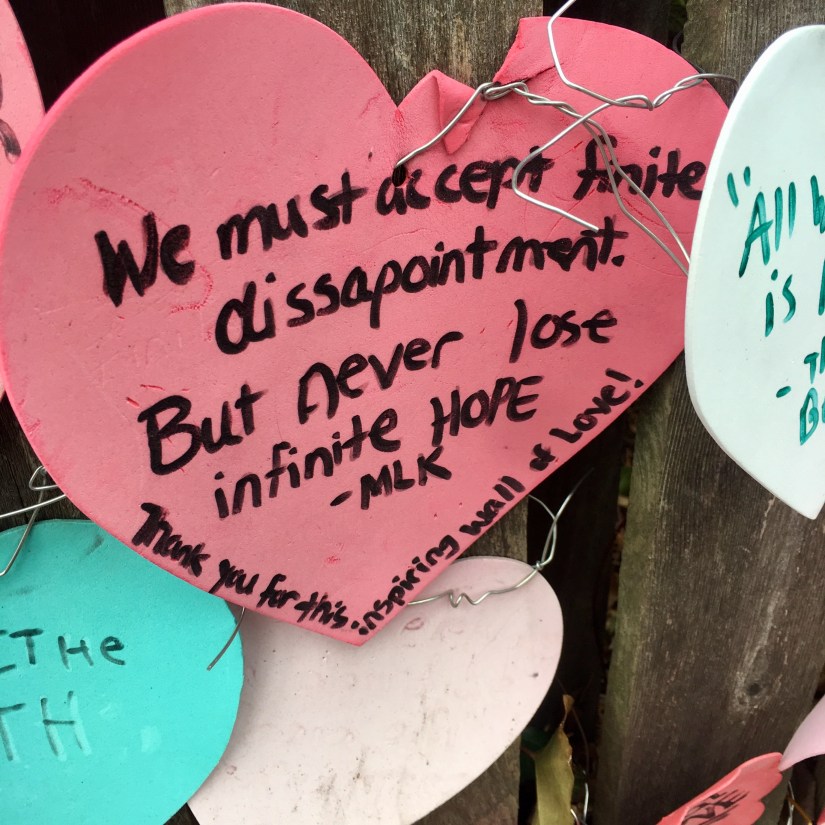 We must accept finite
dissapointment.
But never lose
infinite HOPE
-MLK
Thank you for this inspiring wall of Love!
"All
is
-
THe
TH